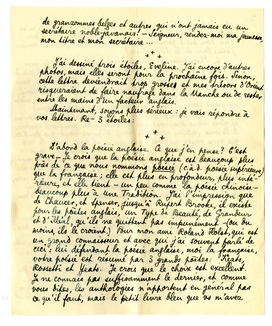 de grangommes belges et autres qui n'ont jamais eu un
secrétaire noble-javanais! — Seigneur, rendez-moi ma jeunesse,
mon titre et mon secrétaire...
+ + +
J'ai dessiné trois étoiles, Eveline. J'ai encore d'autres
photos, mais elles seront pour la prochaine fois. Sinon,
cette lettre deviendrait trop grosse et mes trésors d'Orient
risqueraient de faire naufrage dans la Manche ou de rester
entre les mains d'un facteur anglais.
Maintenant, soyons plus sérieux: je vais répondre à
vos lettres. Re-3 étoiles:
+ + +
D'abord la poésie anglaise. Ce que j'en pense? C'est
grave. Je crois que la poésie anglaise est beaucoup plus
près de ce que nous nommons poésie (càd poésie supérieure)
que la française; elle est plus en profondeur, plus inté-
rieure, et elle tient — un peu comme la poésie chinoise —
beaucoup plus à une Tradition. J'ai l'impression que
de Chaucer, et Spenser, jusqu'à Rupert Brooke, il existe
pour les poètes anglais, un Type de Beauté, de Grandeur
et d'Idéal, qu'ils ne quittent pas impunément (ou du
moins, ils le croient). Pour mon ami Roland Holst, qui est
un grand connaisseur et avec qui j'ai souvent parlé de
ceci: lui défendant la poésie anglaise, moi la française,
votre poésie est résumé par 3 grands poètes: Keats,
Rossetti et Yeats. Je crois que le choix est excellent.
Je ne connais pas suffisamment le dernier, et comme
vous dites, les anthologies n'apportent en général pas
ce qu'il faut, mais le petit livre bleu que vous m'avez